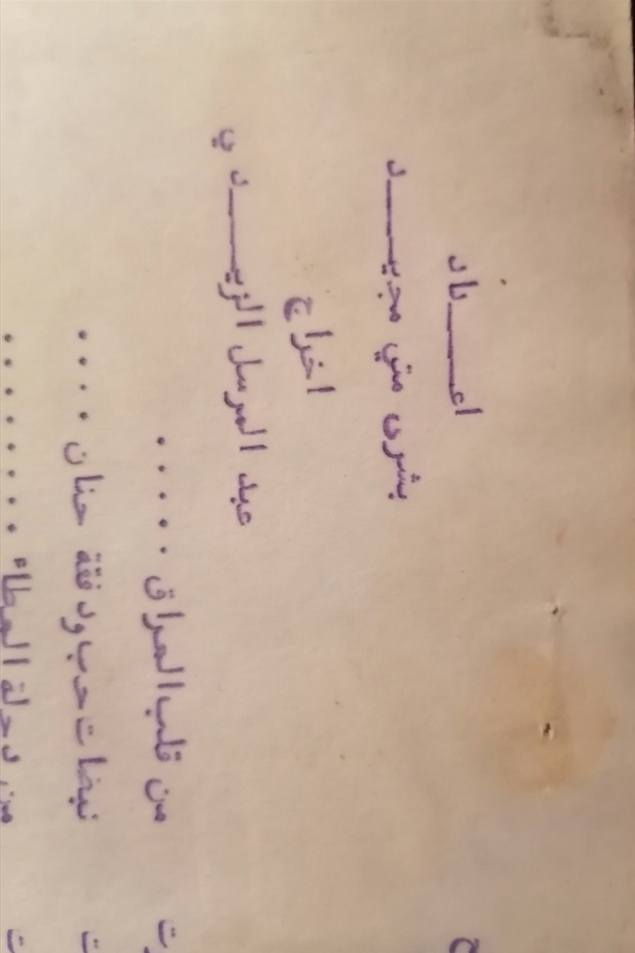 اعـــــداد
بشرى متي مجيـــــــد
اخراج
عبد المرسل الزيـــــــد ي
ت من قلب العراق ......
ت نبضات حب ودفقة حنان ....
ت من دجلة العطاء ........